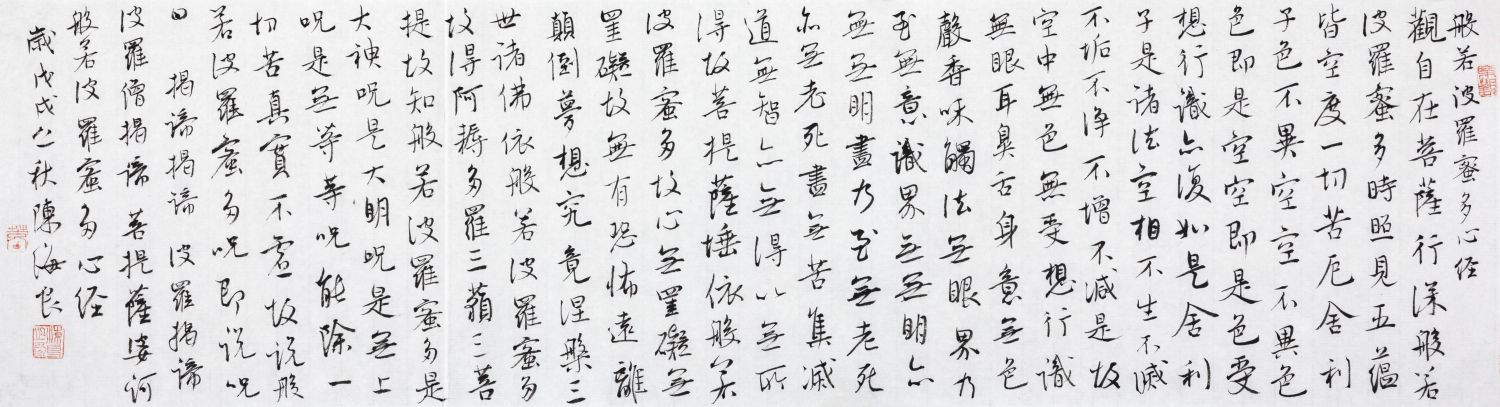 般若波羅蜜多心经
觀自在菩薩行深般若
波羅蜜多時照見五蕴
皆空度一切苦厄舍利
子色不異空空不異色
色即是空空即是色受
想行識亦復如是舍利
子是诸法空相不生不滅
不垢不净不增不减是故
空中無色無受想行識
無眼耳鼻舌身意無色
聲香味觸法无眼界乃
至無意識界无无明亦
無无明盡乃至无老死
亦无老死盡無苦集滅
道無智亦无得以無所
得故菩提薩埵依般若
波羅蜜多故心無罣礙無
罣礙故無有恐怖遠離
顛倒夢想究竟涅槃三
世諸佛依般若波羅蜜多
故得阿耨多羅三藐三菩
提故知般若波羅蜜多是
大神呪是大明呪是無上
呪是无等等呪能除一
切苦真實不虚故说般
若波羅蜜多呪即说呪
曰 揭谛揭谛 波羅揭谛
波羅僧揭谛 菩提薩婆訶
般若波羅蜜多心经
歲戊戌之秋陳海良